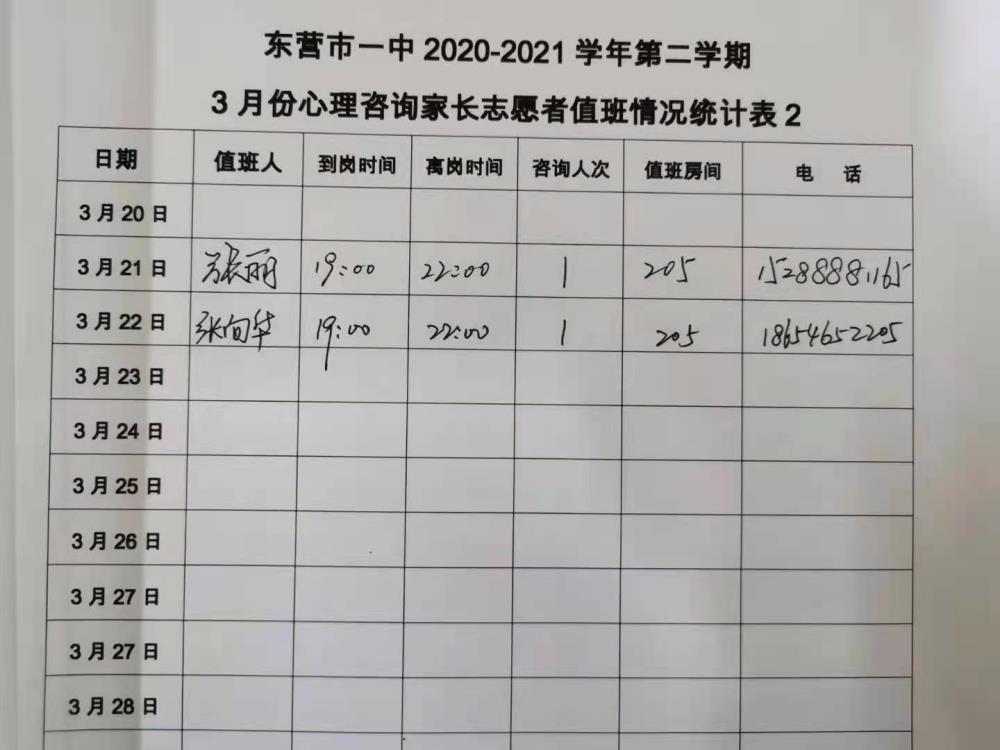 东营市一中 2020-2021 学年第二学期
3 月份心理咨询家长志愿者值班情况统计表 2
日期 值班人 到岗时间 离岗时间 咨询人次 值班房间 电 话
3 月 20 日
3 月 21 日 张丽 19:00 22:00 1 205 15288881165
3 月 22 日 张向华 19:00 22:00 1 205 18654652205
3 月 23 日
3 月 24 日
3 月 25 日
3 月 26 日
3 月 27 日
3 月 27 日
3 月 28 日